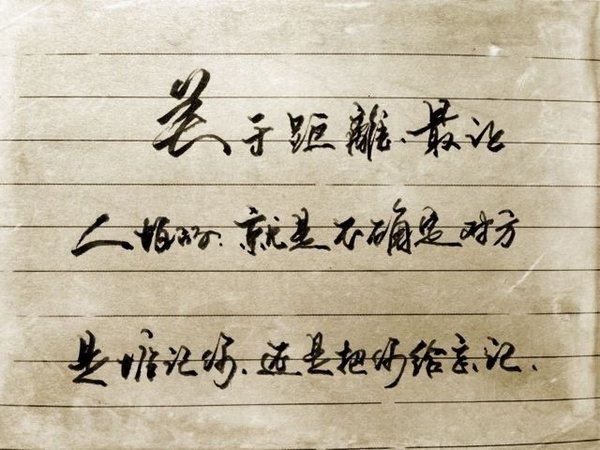 关于距離、最让
人怕的、就是不确定对方
是惦记你、还是把你给忘记、